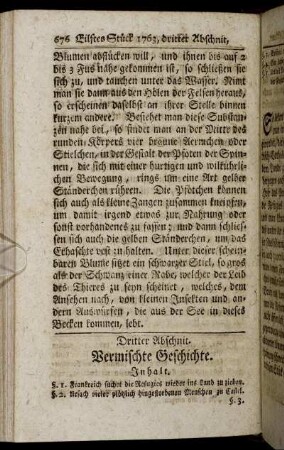 676 Eilftes Stück 1763, dritter Abschnit,
Blumen abstücken will, und ihnen bis auf 2
bis 3 Fus nahe gekommen ist, so schließen sie
sich zu, und tauchen unter das Wasser. Nimt
man sie dann aus den Hölen der Felsen heraus,
so erscheinen daselbst an ihrer Stelle binnen
kurzem andere. Besiehet man diese Substan-
zen nahe bei, so findet man an der Mitte des
runden Körpers vier braune Aermchen oder
Stielchen, in der Gestalt der Pfoten der Spin-
nen, die sich mit einer hurtigen und wilkührli-
chen Bewegung, rings um eine Art gelber
Ständerchen rühren. Die Pfötchen können
sich auch als kleine Zangen zusammen kneipfen,
um damit irgend etwas zur Nahrung oder
sonst vorhandenes zu fassen; und dann schlies-
sen sich auch die gelben Ständerchen, um das
Erhaschte vest zu halten. Unter dieser schein-
baren Blume sitzet ein schwarzer Stiel, so gros
als der Schwanz einer Rabe, welcher der Leib
des Thieres zu seyn scheinet, welches, dem
Ansehen nach, von kleinen Insekten und an-
dern Auswürfen, die aus der See in dieses
Becken kommen, lebt.
Dritter Abschnit.
Vermischte Geschichte.
Inhalt.
§. 1. Frankreich suchet die Refugiés wieder ins Land zu ziehen.
§. 2. Unfach vieler plötzlich hingestorbenen Menschen zu Cassel.
§. 3.